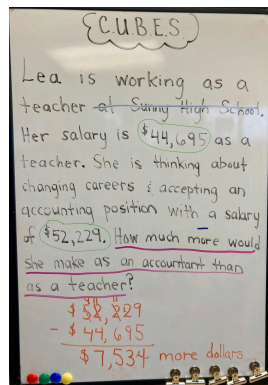 C.U.B.E.S.
Lea is working as a
teacher at Sunny High School.
Her salary is $44,695 as a
teacher. She is thinking about
changing careers & accepting an
accounting position with a salary
of $52,229. How much more would
she make as an accountant than
as a teacher?
$ 52,229
- $ 44,695
$7,534 more dollars